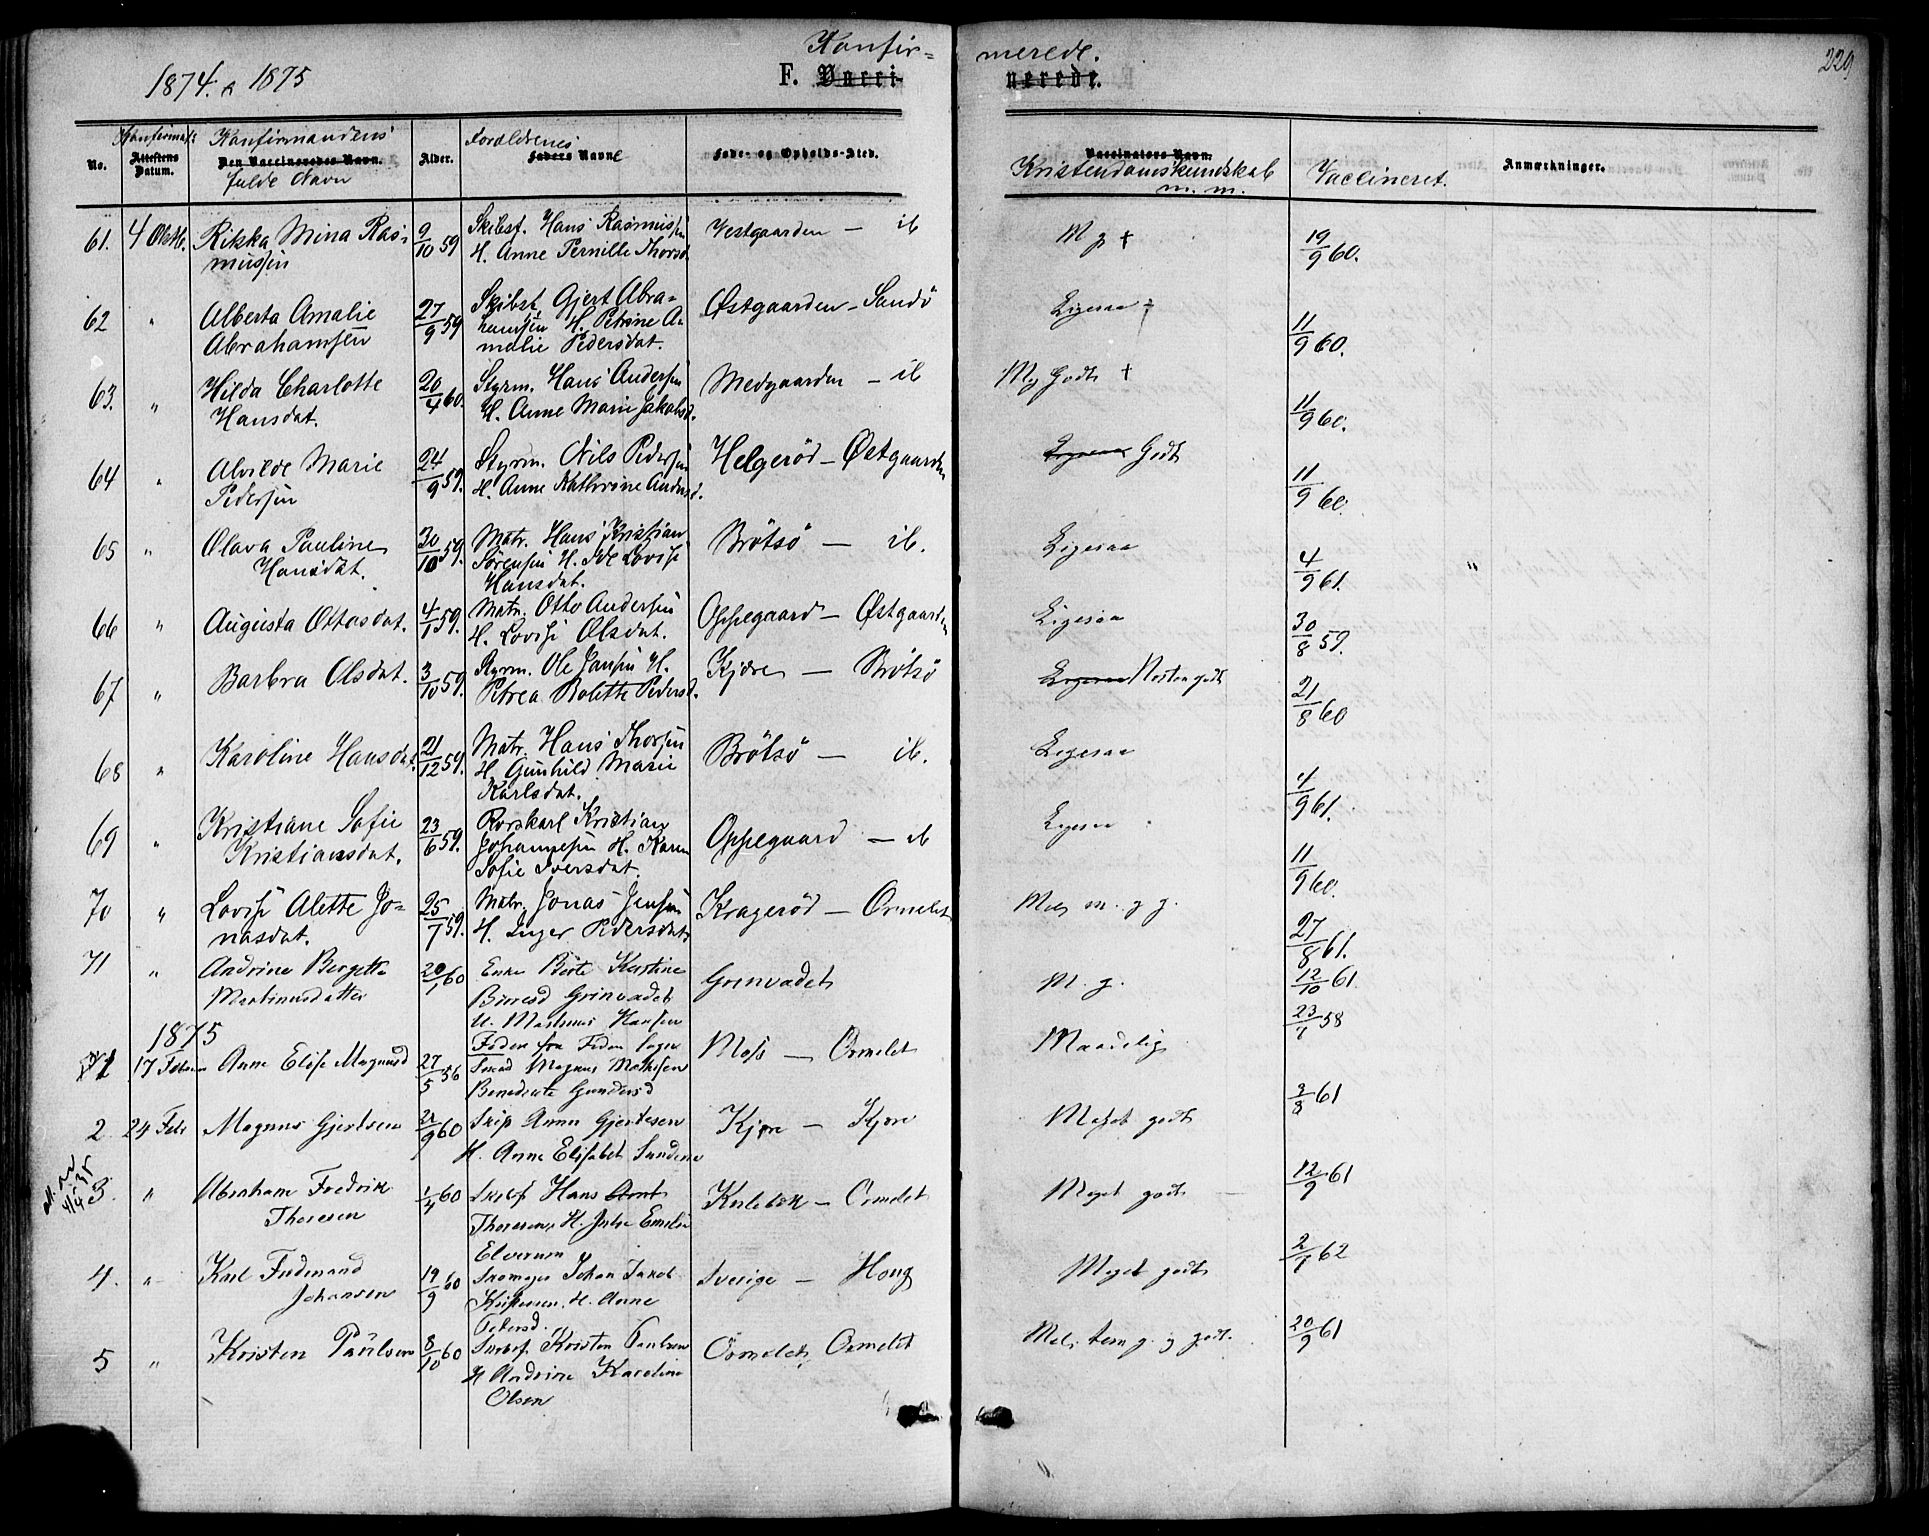 Konfir= merede.
229
1874. & 1875
F. Vacci- nerede.
No.
Konfirmat:
Attestens Datum.
Konfirmandens
Den Vaccineredes Navn.
fulde Navn
Alder.
Forældrenes
Faders Navn
Føde- og Opholds-Sted.
Vaccinators Navn.
Kristendomskundskab
m. m.
Vaccineret.
Anmærkninger.
61. 4 Oktb. Rikka Mina Ras- 9/10 59 Skibsf. Hans Rasmussen Vestgaarden — ib M g + 19/9 60.
mussen H. Anne Pernille Thorsd.
62 " Alberta Amalie 27/9 59 Skibsf. Gjert Abra= Østgaarden - Sandö Ligesaa + 11/9 60.
Abrahamsen hamsen H. Petrine A-
malie Pedersdat.
63. " Hilda Charlotte 20/4 60. Styrm. Hans Andersen Medgaarden - ib Mg Godt + 11/9 60.
Hansdat. H. Anne Marie Jakobsd.
64 " Alvilde Marie 24/9 59. Styrm. Nils Pedersen Helgeröd - Østgaarden Ligesaa Godt 11/9 60.
Pedersen H. Anne Kathrine Andersd.
65 " Olava Pauline 30/10 59. Matr. Hans Kristian Brötsö — ib. Ligesaa 4/9 61. "
Hansdat. Sörensen H. Ide Lovise
Hansdat.
66 " Augusta Ottosdat. 4/1 59. Matr. Otto Andersen Oppegaard - Østgaarden Ligesaa 30/8 59.
H. Lovise Olsdat.
67 " Barbra Olsdat. 3/10 59. Styrm. Ole Jansen H. Kjöre — Brötsö Ligesaa Næsten godt 21/8 60
Petrea Bolette Pedersd.
68 " Karoline Hansdat. 21/12 59. Matr. Hans Thorsen Brötsö — ib. Ligesaa 4/9 61.
H. Gunhild Marie
Karlsdat.
69 " Kristiane Sofie 23/6 59. Rorskarl Kristian Oppegaard — ib Ligesaa 11/9 60.
Kristiansdat. Johannesen H. Karen
Sofie Iversdat.
70 " Lovise Alette Jo= 25/7 59. Matr. Jonas Jensen Krageröd — Ormelet M. g. g. 27/8 61.
nasdat. H. Inger Pedersdat.
71 " Andrine Bergette 20/1 60 Enke Berte Kerstine Grinvadet M. g. 12/10 61.
Martinusdatter Grinvadet
M. Martinus Hansen
1875
1 17 Februar Anne Elise Magnusd 27/5 56 Magnus Mathisen Moss — Ormelet Maadelig 23/1 58
Benedicte Gundersd
2 24 Febr Magnus Gjertsen 22/9 60 Skip Gjertesen Kjøre — Kjøre Meget godt 3/8 61
H. Anne Elisabet
3. " Abraham Fredrik 1/4 60 Skibsf Hans Ormelet Meget godt — 12/9 61
Thoresen Thoresen, H. Julie Emilie
Elverum
4. " Karl Ferdinand 19/9 60 Skomager Johan Jakob Sverige — Houg Meget godt 2/1 62
Johansen H. Anne
Petersd.
5 " Kristen Paulsen 8/10 60 Skibsf. Kristen Paulsen Ormelet, Ormelet Mel. tem. g. g godt. 20/9 61
H Andrine Karoline
Olsen